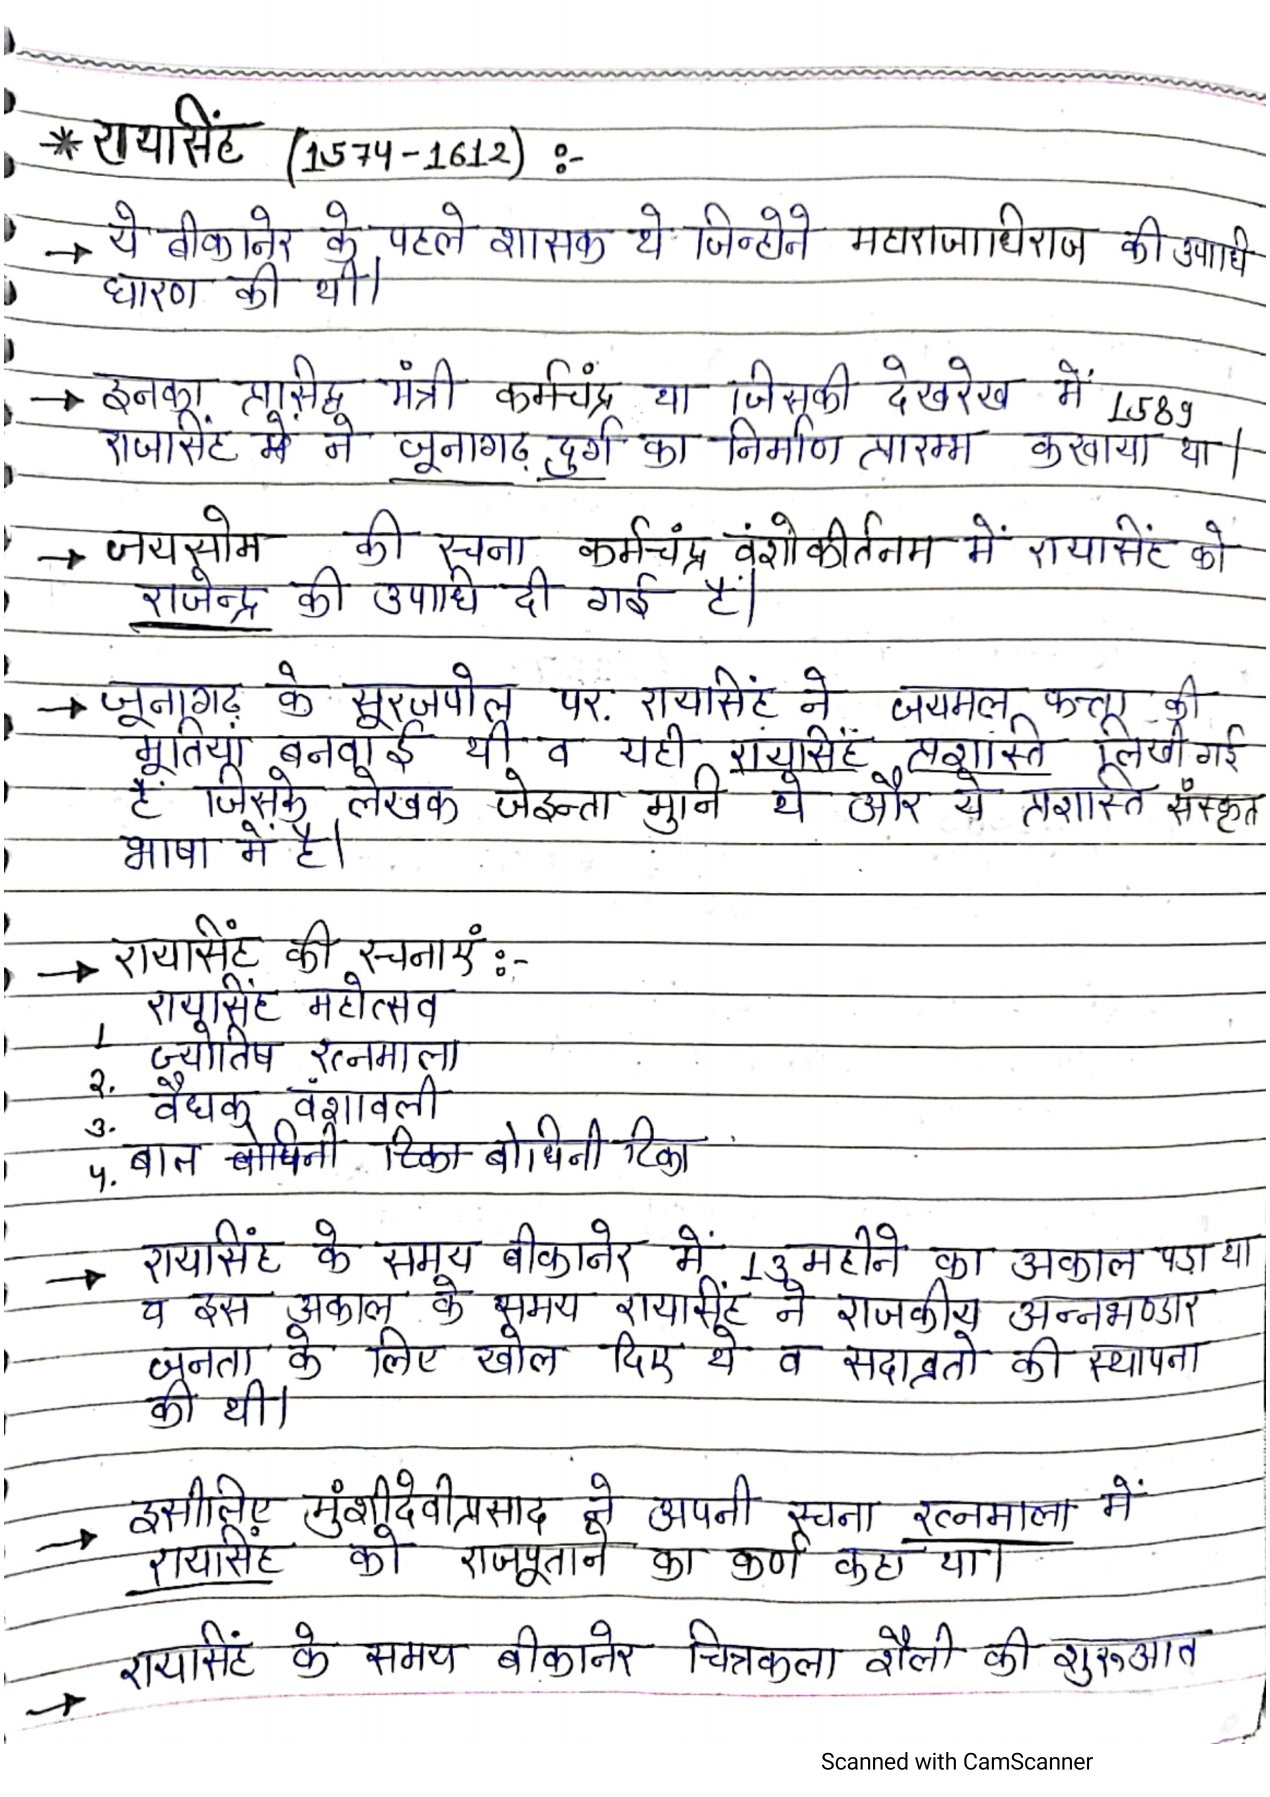 * रायसिंह (1574-1612) :-
→ ये बीकानेर के पहले शासक थे जिन्होने महाराजाधिराज की उपाधि
धारण की थी।
→ इनका प्रसिद्ध मंत्री कर्मचंद्र था जिसकी देखरेख में 1589
राजसिंह ने जूनागढ़ दुर्ग का निर्माण प्रारम्भ करवाया था।
→ जयसोम की रचना कर्मचंद्र वंशोकीर्तनम में रायसिंह को
राजेन्द्र की उपाधि दी गई है।
→ जूनागढ़ के सूरजपोल पर रायसिंह ने जयमल फत्ता की
मूर्तियां बनवाई थी व यही रायसिंह प्रशस्ति लिखी गई
है जिसके लेखक जेइन्ता मुनि थे और ये प्रशस्ति संस्कृत
भाषा में है।
→ रायसिंह की रचनाएं :-
1 रायसिंह महोत्सव
2. ज्योतिष रत्नमाला
3. वैधक वंशावली
4. बाल बोधिनी टिका
→ रायसिंह के समय बीकानेर में 13 महीने का अकाल पड़ा था
व इस अकाल के समय रायसिंह ने राजकीय अन्नभण्डार
जनता के लिए खोल दिए थे व सदाव्रतो की स्थापना
की थी।
→ इसीलिए मुंशीदेवीप्रसाद ने अपनी रचना रत्नमाला में
रायसिंह को राजपूताने का कर्ण कहा था।
→ रायसिंह के समय बीकानेर चित्रकला शैली की शुरुआत
Scanned with CamScanner